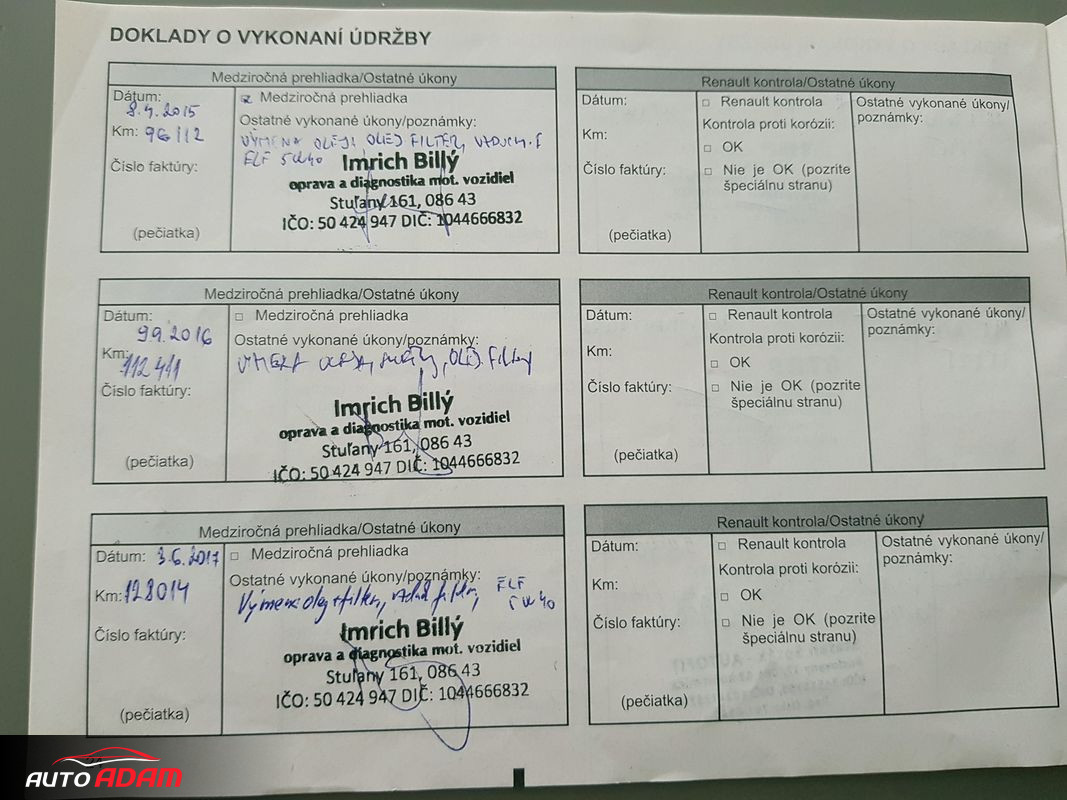 DOKLADY O VYKONANÍ ÚDRŽBY
Medziročná prehliadka/Ostatné úkony
Dátum:
8.4.2015
Km: 96112
Číslo faktúry:
(pečiatka)
Medziročná prehliadka
Ostatné vykonané úkony/poznámky:
VÝMENA OLEJA, OLEJ FILTER, VZDUCH. F
ELF 5W40
Imrich Billý
oprava a diagnostika mot. vozidiel
Stuľany 161, 086 43
IČO: 50 424 947 DIČ: 1044666832
Renault kontrola/Ostatné úkony
Dátum:
Km:
Číslo faktúry:
(pečiatka)
□ Renault kontrola
Kontrola proti korózii:
□ OK
□ Nie je OK (pozrite
špeciálnu stranu)
Ostatné vykonané úkony/
poznámky:
Medziročná prehliadka/Ostatné úkony
Dátum:
9.9.2016
Km:
112411
Číslo faktúry:
(pečiatka)
□ Medziročná prehliadka
Ostatné vykonané úkony/poznámky:
OLEJ. Filter
Imrich Billý
oprava a diagnostika mot. vozidiel
Stuľany 161, 086 43
IČO: 50 424 947 DIČ: 1044666832
Renault kontrola/Ostatné úkony
Dátum:
Km:
Číslo faktúry:
(pečiatka)
□ Renault kontrola
Kontrola proti korózii:
□ OK
□ Nie je OK (pozrite
špeciálnu stranu)
Ostatné vykonané úkony/
poznámky:
Medziročná prehliadka/Ostatné úkony
Dátum: 3.6.2017
Km: 128014
Číslo faktúry:
(pečiatka)
□ Medziročná prehliadka
Ostatné vykonané úkony/poznámky:
Výmena olej + filter, filter, ELF
5W40
Imrich Billý
oprava a diagnostika mot. vozidiel
Stuľany 161, 086 43
IČO: 50 424 947 DIČ: 1044666832
Renault kontrola/Ostatné úkony
Dátum:
Km:
Číslo faktúry:
(pečiatka)
□ Renault kontrola
Kontrola proti korózii:
□ OK
□ Nie je OK (pozrite
špeciálnu stranu)
Ostatné vykonané úkony/
poznámky:
AUTO ADAM